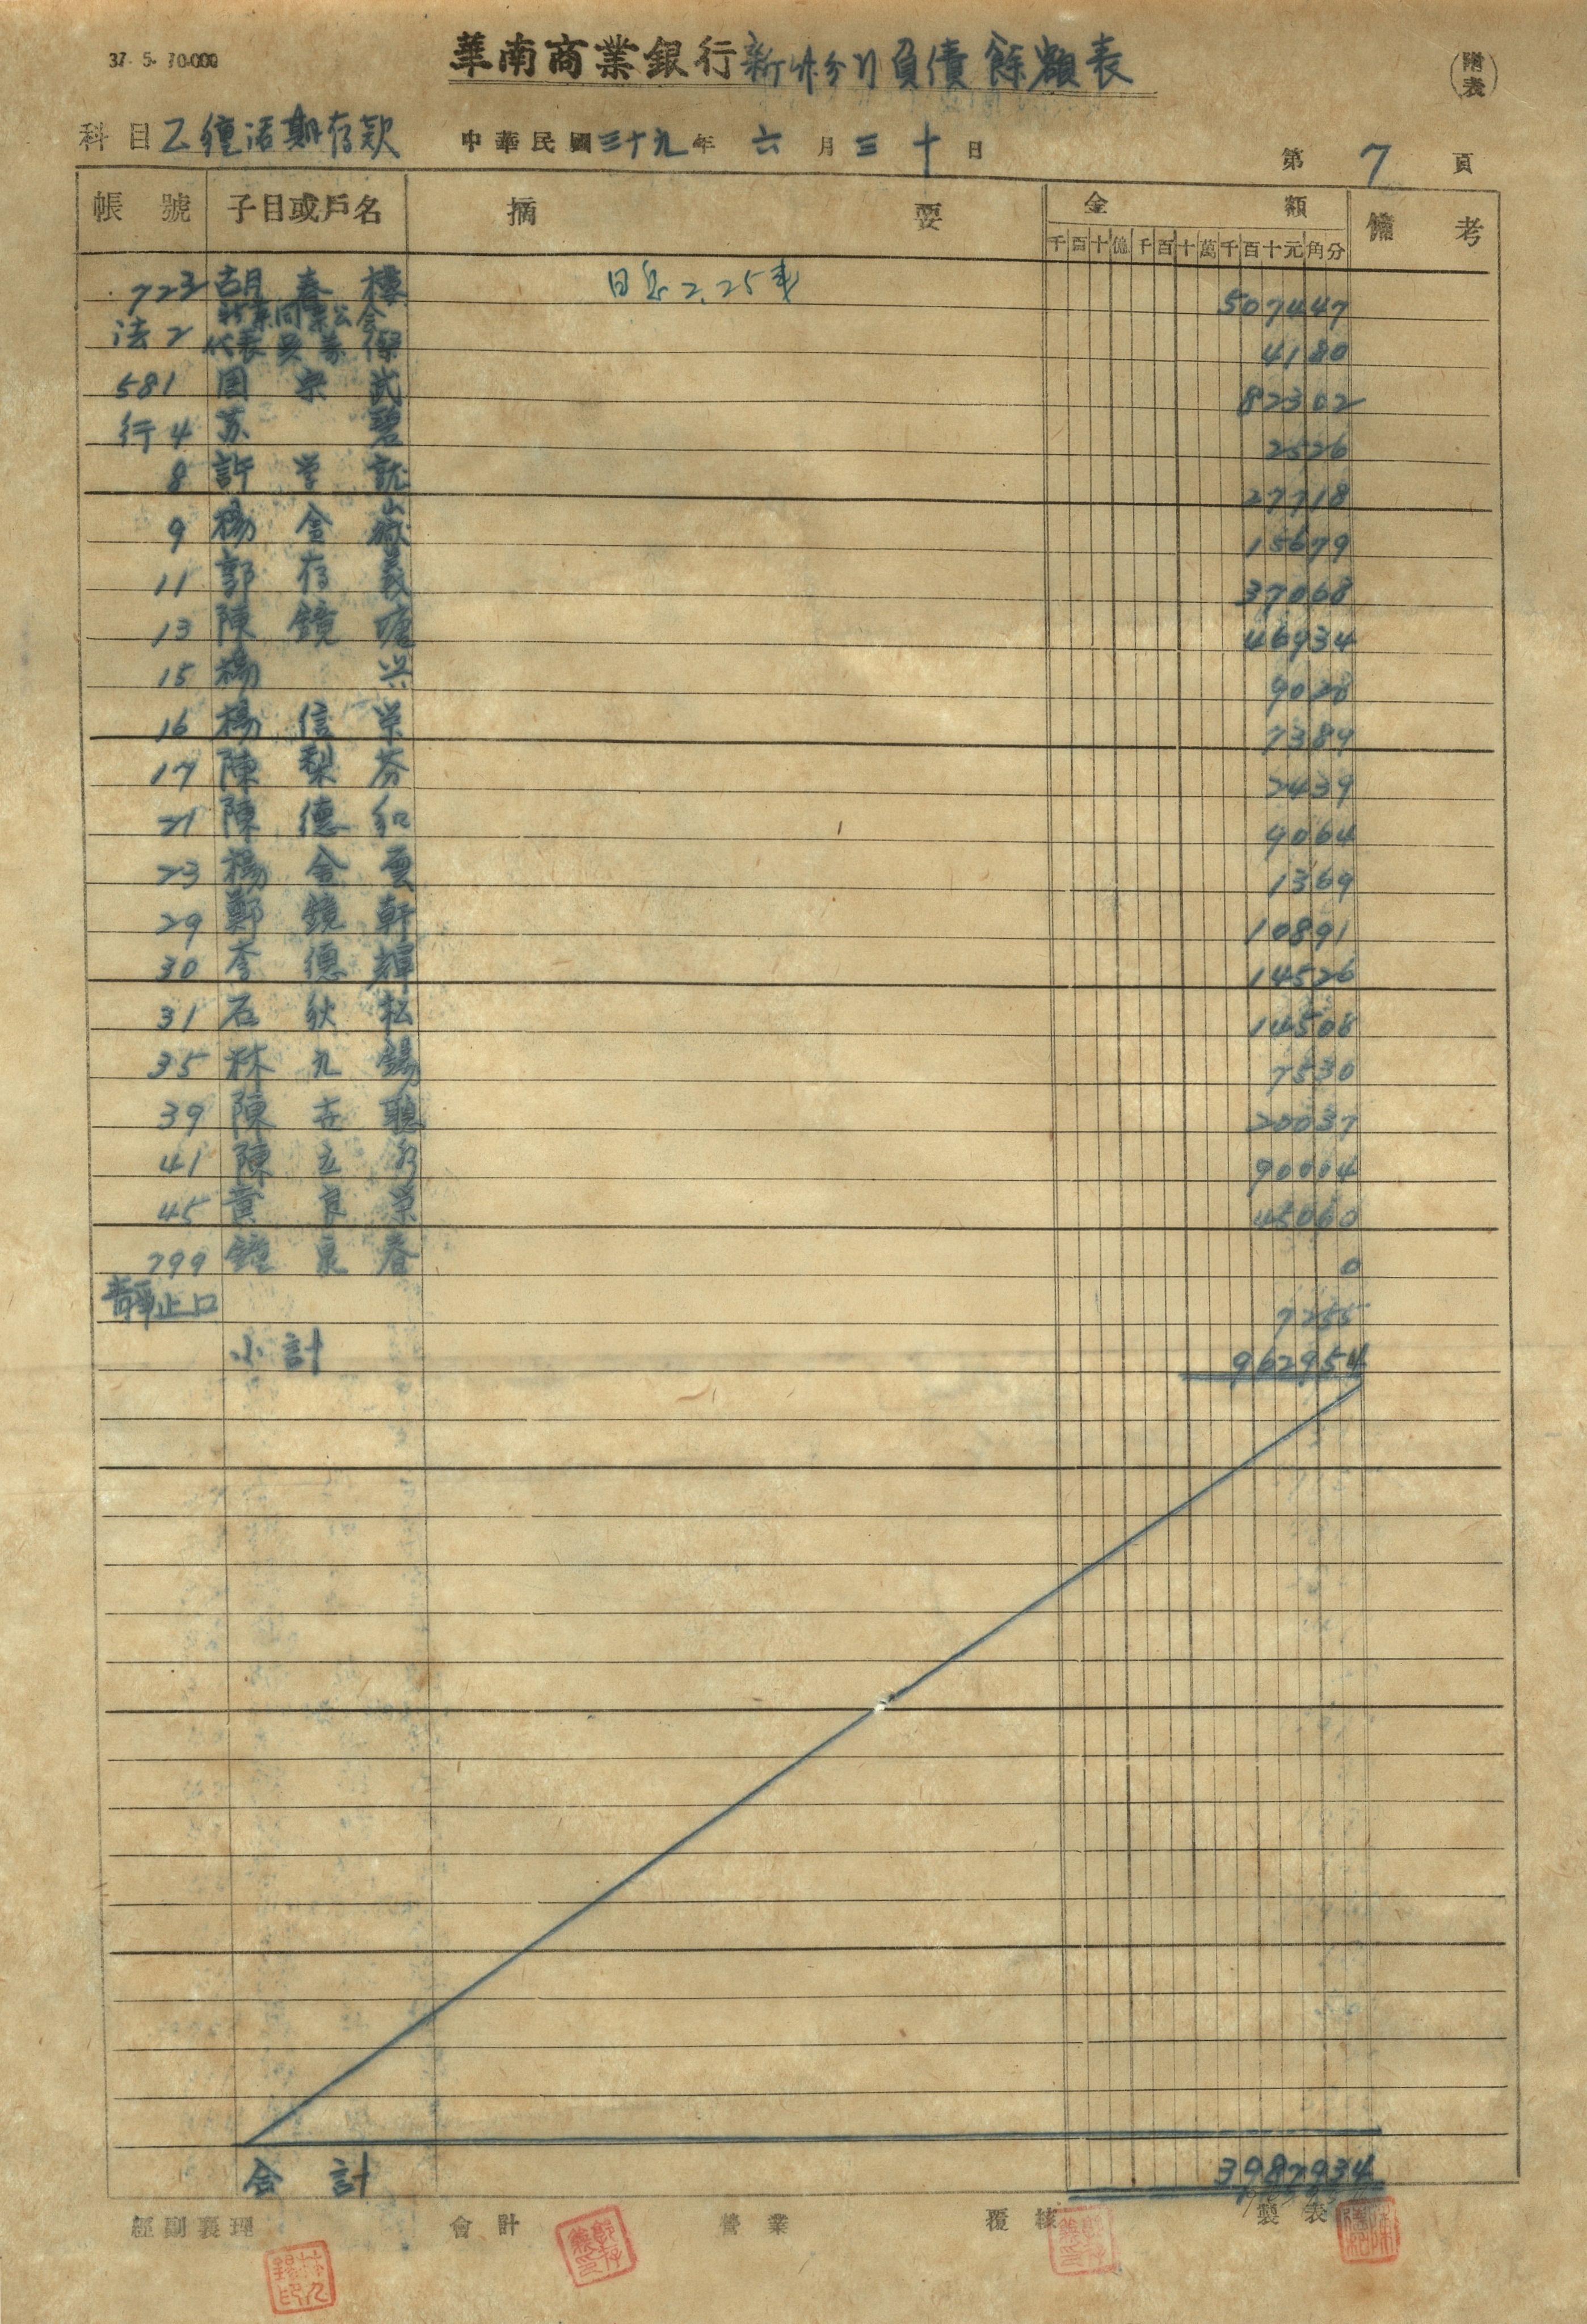 37. 5. 70.000
華南商業銀行新竹分行負債餘額表
(附表)
科目 乙種活期存款 中華民國三十九年 六月三十日 第 7 頁
帳號 子目或戶名 摘要 金額 備考
千百十億千百十萬千百十元角分
723 胡春樓 日息2.25 507447
法2 同業公會 代表 4180
581 周宗武 82302
行4 蘇碧 2526
8 許学 27718
9 楊金嶽 15679
11 郭存義 37068
13 陳鏡塘 46934
15 楊兴 9028
16 楊信栄 7389
17 陳梨芬 2439
21 陳德和 9064
23 楊金雲 1369
29 鄭鏡軒 10891
30 李德輝 14526
31 石秋松 14508
35 林九錫 7530
39 陳聰 20037
41 陳 90004
45 黃良栄 45060
799 鐘泉春 0
止口 7255
小計 962954
合計 3987934
經副襄理 會計 營業 覆核 製表